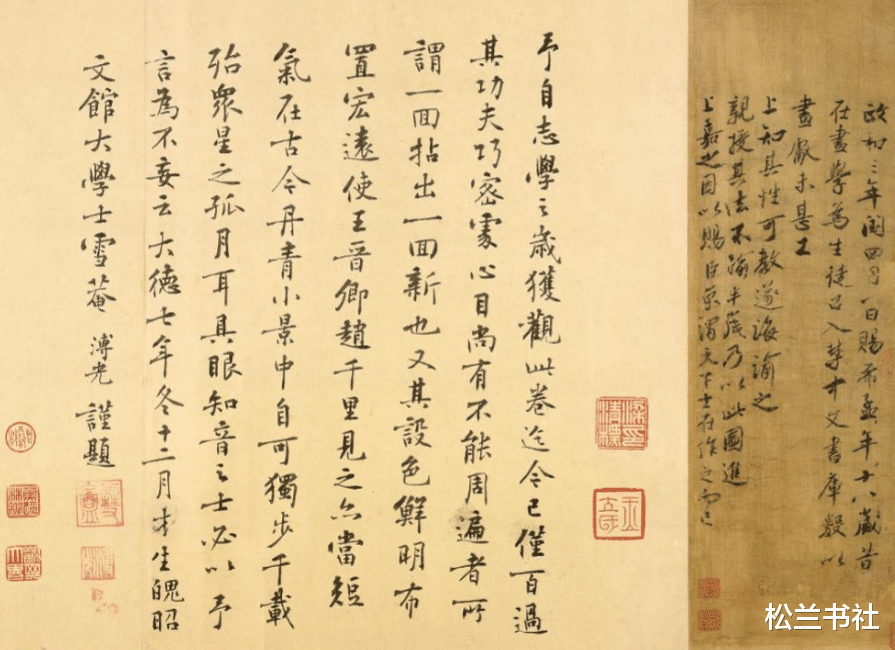 政和三年閏四月一日賜希孟年十八歲昔
在畫學為生徒召入禁中文書庫數以
畫獻未甚工
上知其性可教遂誨諭之
親授其法不踰半歲乃以此圖進
上嘉之因以賜臣京謂天下士在作之而已
予自志學之歲獲觀此卷迄今已僅百過
其功夫巧密處心目尚有不能周遍者所
謂一回拈出一回新也又其設色鮮明布
置宏遠使王晉卿趙千里見之亦當短
氣在古今丹青小景中自可獨步千載
殆眾星之孤月耳具眼知音之士必以予
言為不妄云大德七年冬十二月才生魄昭
文館大學士雪菴溥光謹題
松兰书社